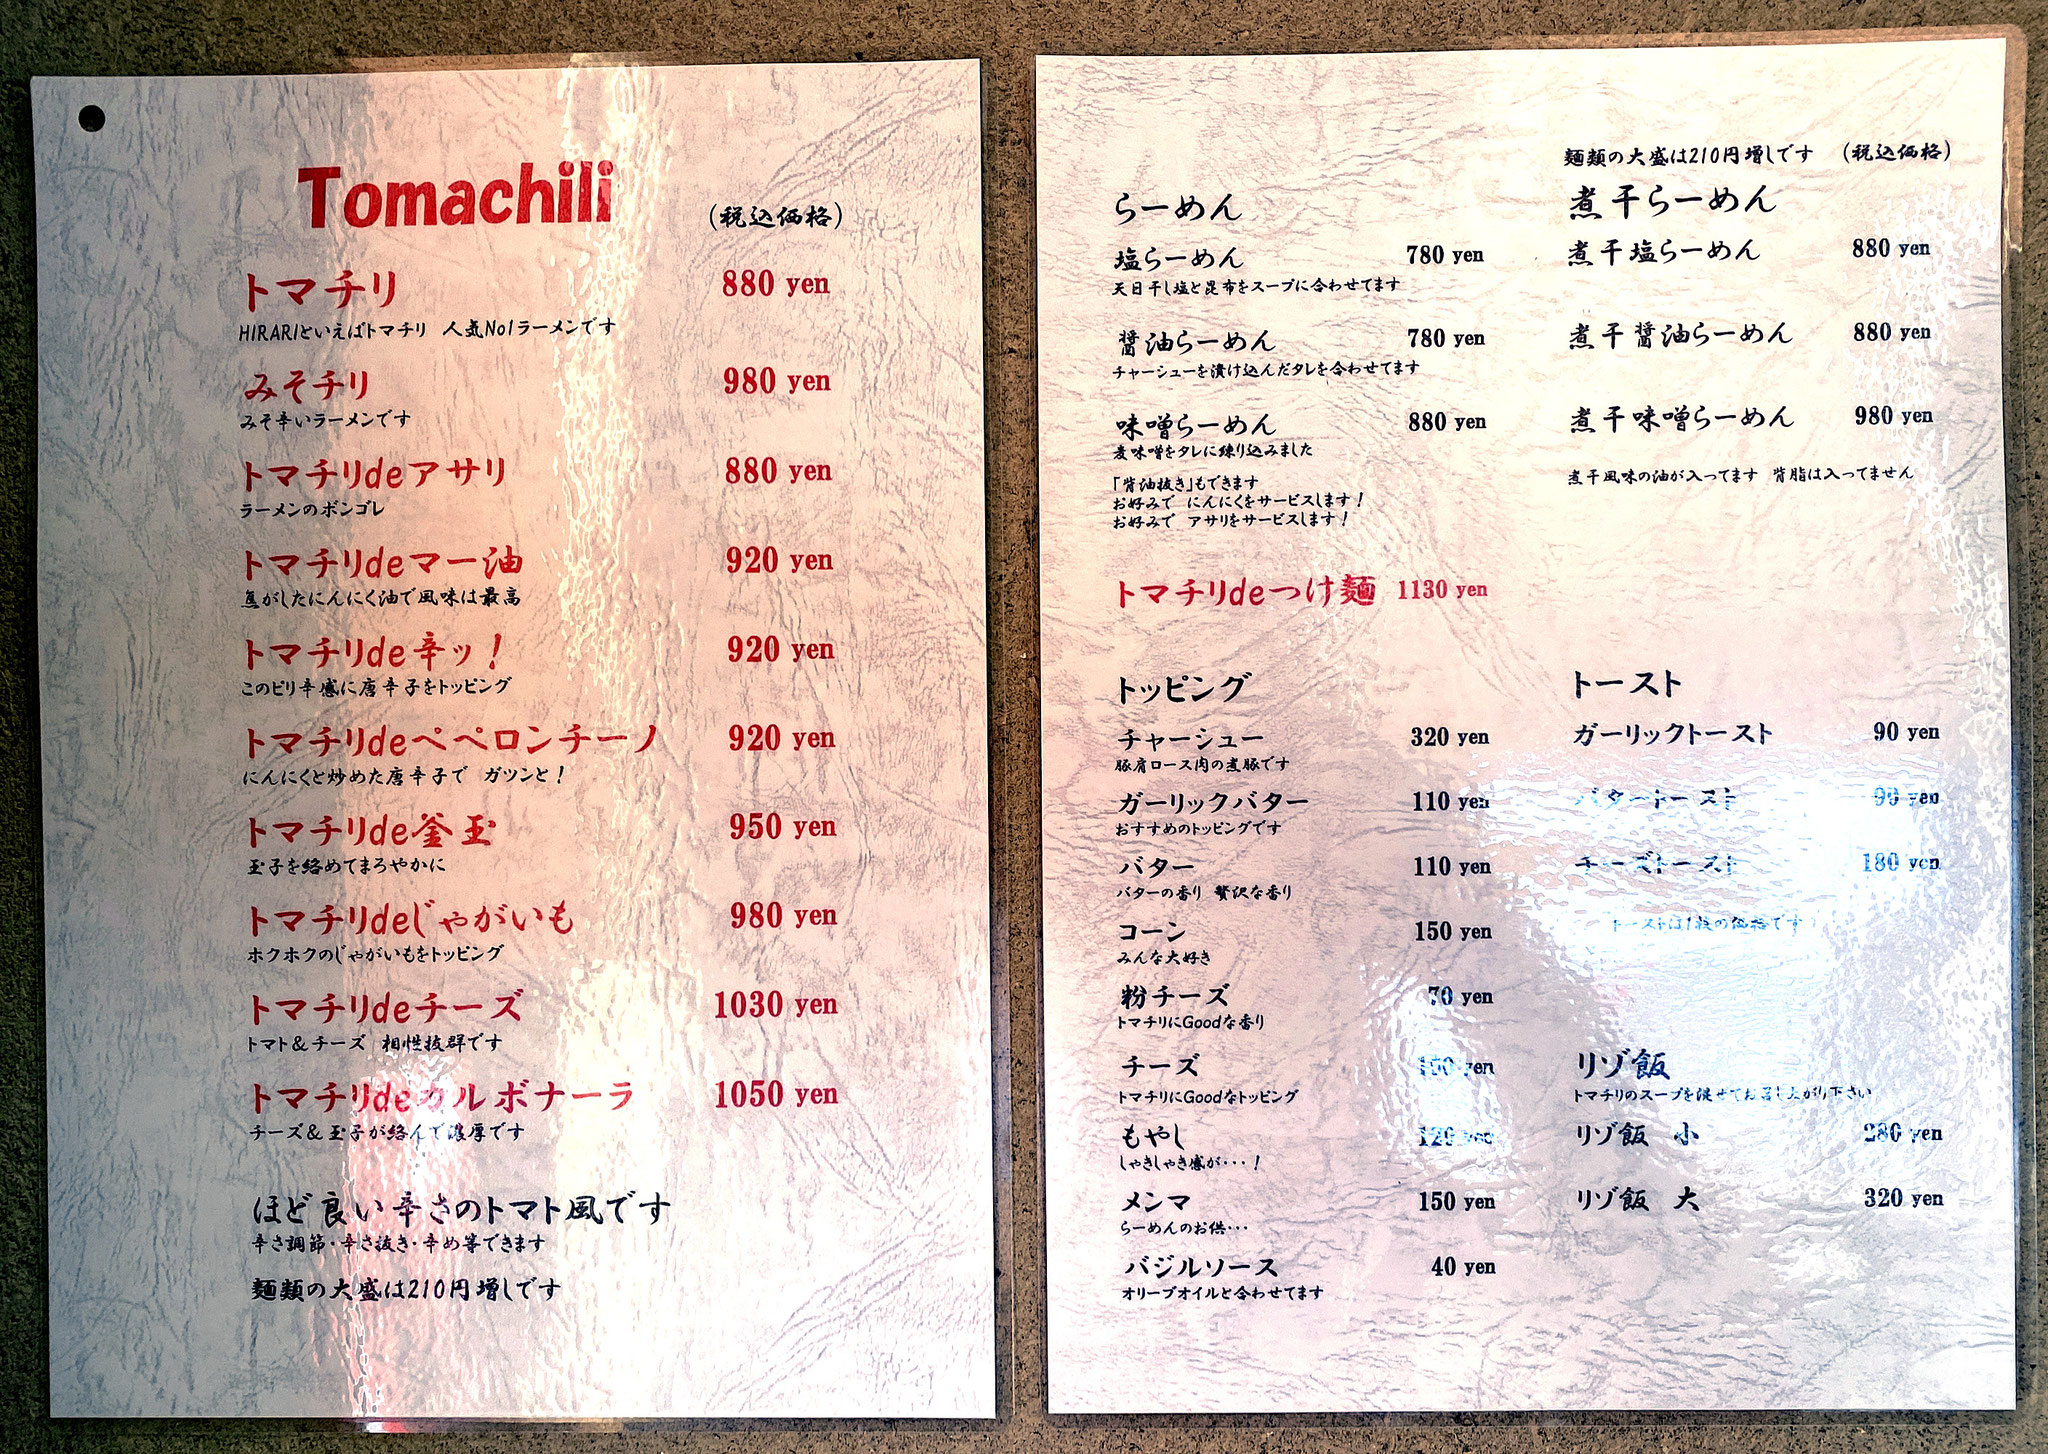 Tomachili
(税込価格)
トマチリ 880 yen
HIRARIといえばトマチリ 人気No1ラーメンです
みそチリ 980 yen
みそ辛いラーメンです
トマチリdeアサリ 880 yen
ラーメンのボンゴレ
トマチリdeマー油 920 yen
焦がしたにんにく油で風味は最高
トマチリde辛ッ! 920 yen
このピリ辛感に唐辛子をトッピング
トマチリdeペペロンチーノ 920 yen
にんにくと炒めた唐辛子で ガツンと!
トマチリde釜玉 950 yen
玉子を絡めてまろやかに
トマチリdeじゃがいも 980 yen
ホクホクのじゃがいもをトッピング
トマチリdeチーズ 1030 yen
トマト&チーズ 相性抜群です
トマチリdeカルボナーラ 1050 yen
チーズ&玉子が絡んで濃厚です
ほど良い辛さのトマト風です
辛さ調節・辛さ抜き・辛め等できます
麺類の大盛は210円増しです
麺類の大盛は210円増しです (税込価格)
らーめん
塩らーめん 780 yen
天日干し塩と昆布をスープに合わせてます
醤油らーめん 780 yen
チャーシューを漬け込んだタレを合わせてます
味噌らーめん 880 yen
麦味噌をタレに練り込みました
「背油抜き」もできます
お好みで にんにくをサービスします!
お好みで アサリをサービスします!
煮干らーめん
煮干塩らーめん 880 yen
煮干醤油らーめん 880 yen
煮干味噌らーめん 980 yen
煮干風味の油が入ってます 背脂は入ってません
トマチリdeつけ麺 1130 yen
トッピング
チャーシュー 320 yen
豚肩ロース肉の煮豚です
ガーリックバター 110 yen
おすすめのトッピングです
バター 110 yen
バターの香り 贅沢な香り
コーン 150 yen
みんな大好き
粉チーズ 70 yen
トマチリにGoodな香り
チーズ yen
トマチリにGoodなトッピング
もやし 120 yen
しゃきしゃき感が・・・!
メンマ 150 yen
らーめんのお供・・・
バジルソース 40 yen
オリーブオイルと合わせてます
トースト
ガーリックトースト 90 yen
バタートースト 90 yen
チーズトースト 180 yen
トーストは1枚の価格です
リゾ飯
トマチリのスープを混ぜてお召し上がり下さい
リゾ飯 小 280 yen
リゾ飯 大 320 yen